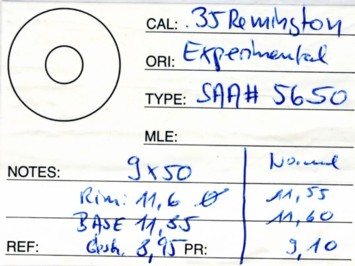 CAL: .35 Remington
ORI: Experimental
TYPE: SAA# 5650
MLE:
NOTES: 9x50 Normal
Rim: 11,6 11,55
BASE 11,85 11,60
REF: 8,95 PR: 9,10